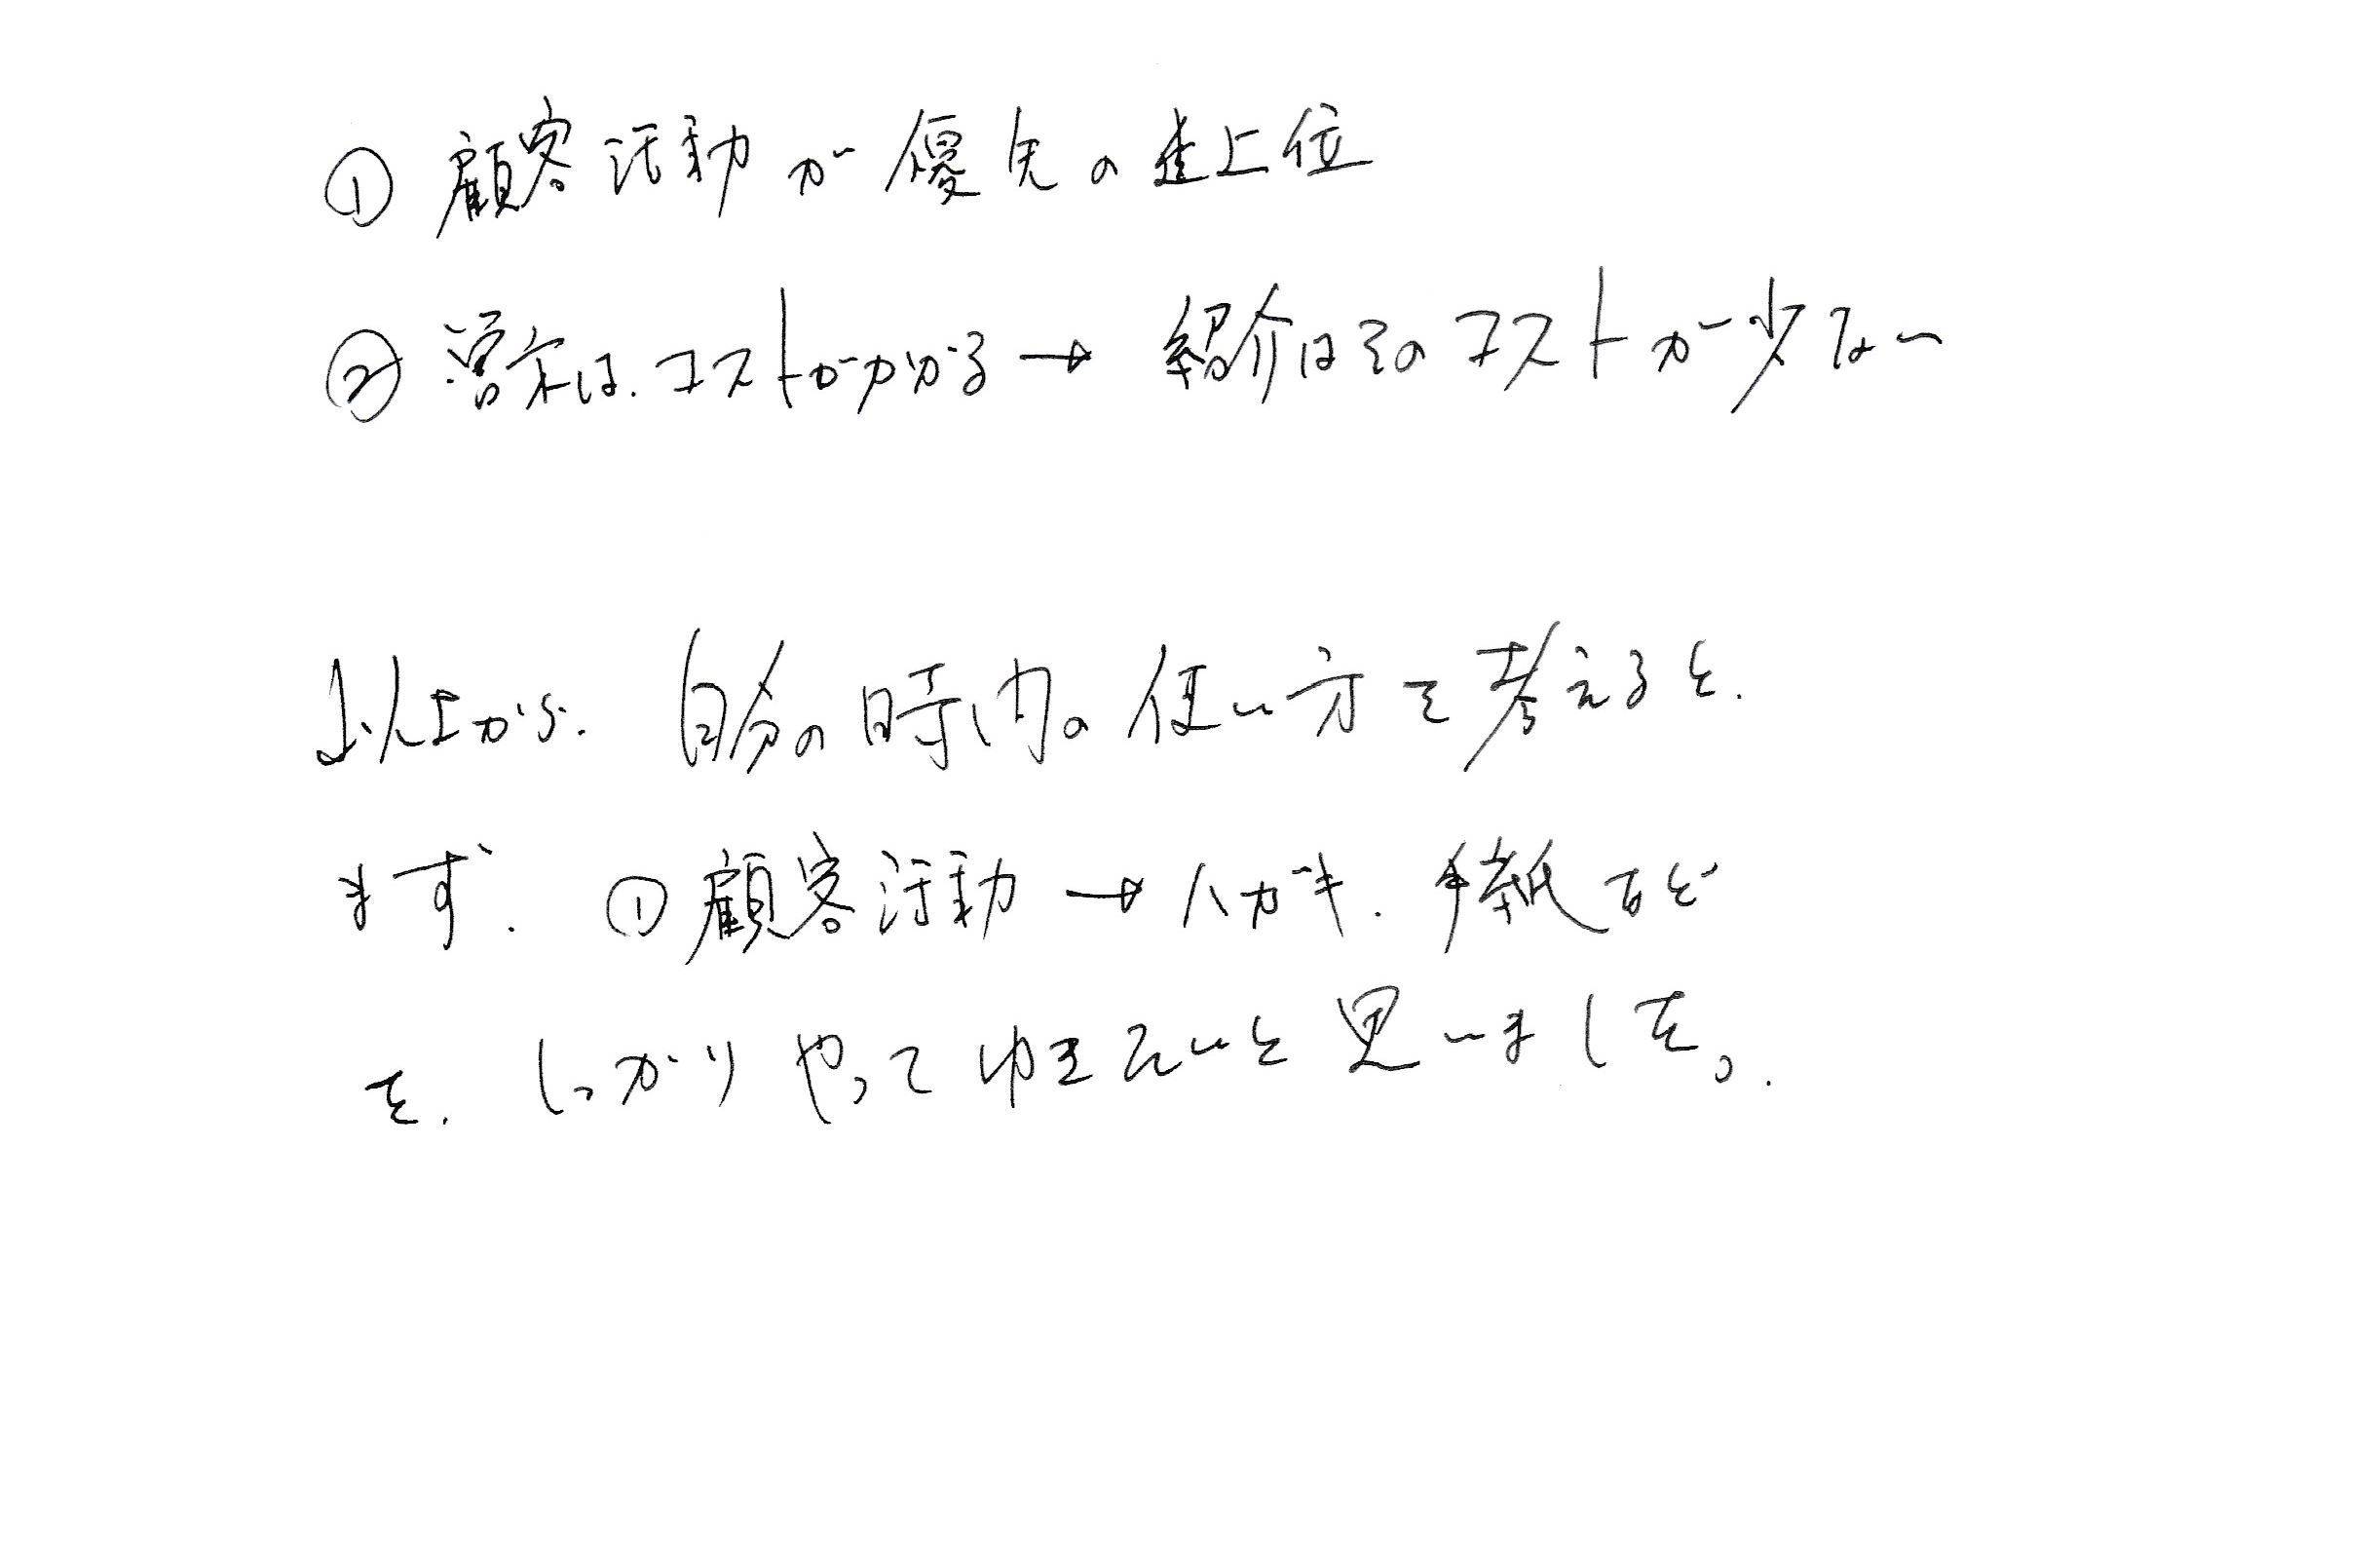 ① 顧客活動が優先の 上位
② 営業は、コストがかかる → 紹介はそのコストが少ない
以上から、自分の時間の使い方を考えると、
まず、①顧客活動 → ハガキ、手紙など
を、しっかりやってゆきたいと思いました。